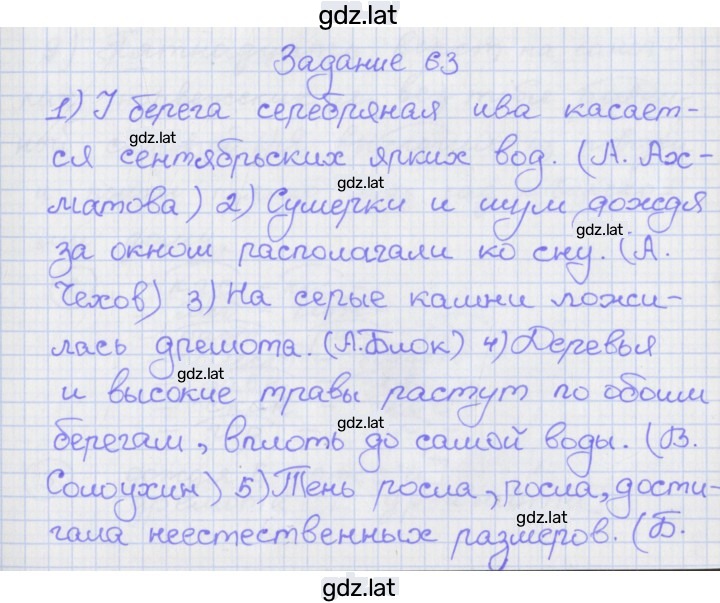 gdz.lat
Задание 63
1) У берега серебряная ива касает-
gdz.lat
ся сентябрьских ярких вод. (А. Ах-
gdz.lat
матова) 2) Сумерки и шум дождя
gdz.lat
за окном располагали ко сну. (А.
Чехов) 3) На серые камни ложи-
лась дремота. (А. Блок) 4) Деревья
gdz.lat
и высокие травы растут по обоим
gdz.lat
берегам, вплоть до самой воды. (В.
Солоухин) 5) Тень росла, росла, дости-
гала неестественных размеров. (Б.
gdz.lat
gdz.lat